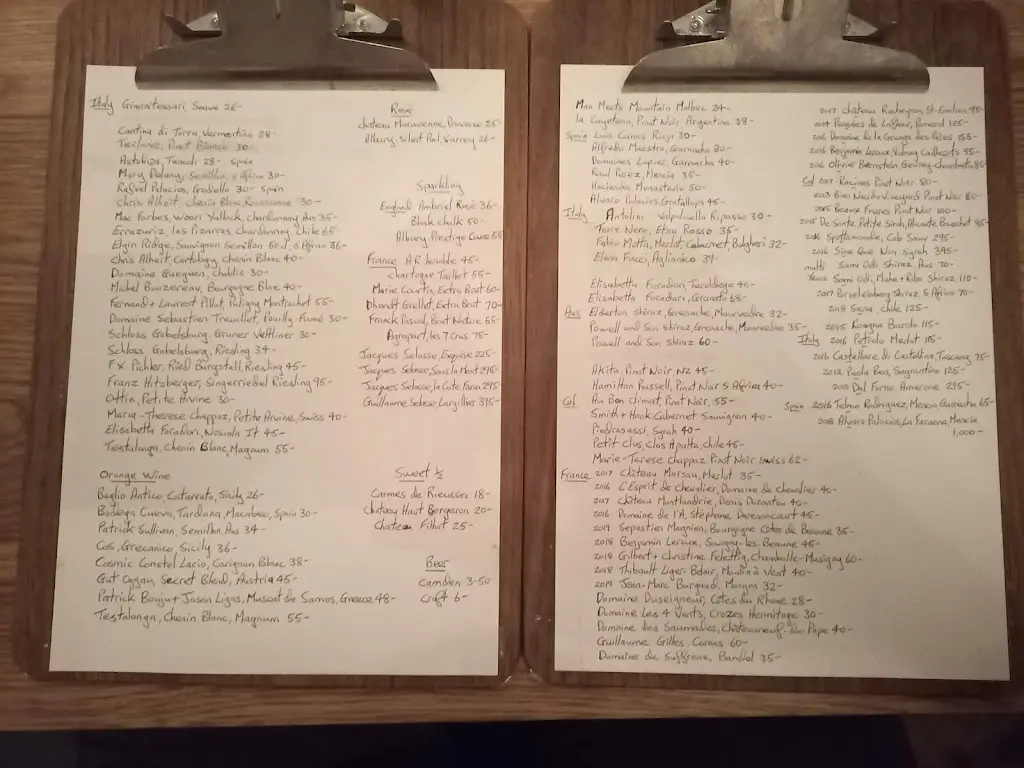 Italy Giannitessari, Soave 26-
Cantina di Torra Vermentino 28-
Terlaner, Pinot Bianco 30-
Astobiza, Txakoli 28- Spain
Mery Delany, Semillon, S Africa 30-
Rafael Palacios, Godello 30- Spain
Chris Alheit, Chenin Blanc, Roussanne 30-
Mac Forbes, Woori Yallock, Chardonnay Aus 35-
Errazuriz, las Pizarras, Chardonny, Chile 65-
Elgin Ridge, Sauvignon Semillon S Africa 36-
Chris Alheit, Cartology, Chenin Blanc 40-
Domaine Gueguen, Chablis 30-
Michel Bouzereau, Bourgogne Blanc 40-
Fernand + Laurent Pillot, Puligny Montrachet 55-
Domaine Sebastien Treuillet, Pouilly Fumé 30-
Schloss Gobelsburg Gruner Veltliner 30-
Schloss Gobelsburg, Riesling 34-
Fx Pichler, Ried Burgstall, Riesling 45-
Franz Hitzberger, Singerriedel Riesling 95-
Ottin, Petite Arvine 30-
Marie-Therese Chappaz, Petite Arvine, Swiss 40-
Elisabetta Foradori, Nosiola It 45-
Testalonga, Chenin Blanc, Magnum 55-
Orange Wine
Baglio Antico, Catarrato, Sicily 26-
Bodega Cueva, Tardana, Macabeo, Spain 30-
Patrick Sullivan, Semillon Aus 34-
Cos, Grecanico, Sicily 36-
Cosmic Constel Lacio, Carignan Blanc 38-
Gut Oggau, Secret Blend, Austria 45-
Patrick Bouju + Jason Ligas, Muscat de Samos, Greece 48-
Testalonga, Chenin Blanc, Magnum 55-
Rosé
Chateau Marouvenne, Provence 25-
Albury, Silent Pool, Surrey 26-
Sparkling
England Ambriel Rosé 36-
Black Chalk 50-
Albury, Prestige Cuvee 55
France A R Lenoble 45-
Chartogne Taillet 55-
Marie Courtin, Extra Brut 60-
Dhondt Grellet, Extra Brut 70-
Franck Pascal, Brut Nature 65-
Agrapart, les 7 Crus 75-
Jacques Selosse, Exquise 225-
Jacques Selosse, Sous le Mont 295-
Jacques Selosse, La Cote Faron 295-
Guillaume Selosse, Largillier 395-
Sweet ½
Carmes de Rieussec 18-
Chateau Haut Bergeron 20-
Chateau Filhot 25-
Beer
Camden 3-50
Craft 6-
Man Meets Mountain Malbec 24-
la Cayetana, Pinot Noir Argentina 38-
Spain Luis Canas Rioja 30-
Alfredo Maestro, Garnacha 30-
Domaines Lupier, Garnacha 40-
Raul Perez, Mencia 35-
Hacienda Monasterio 50-
Alvaro Palacios Gratallops 45-
Italy Antolini Valpolicella Ripasso 30-
Terre Nere, Etna Rosso 35-
Fabio Motta, Merlot, Cabernet, Bolgheri 32-
Elena Fucci, Aglianico 34-
Elisabetta Foradori, Teroldego 40-
Elisabetta Foradori, Granato 68-
Aus Elderton Shiraz, Grenache, Mourvedre 32-
Powell and Son Shiraz, Grenache, Mourvedre 35-
Powell and Son Shiraz 60-
Akita, Pinot Noir NZ 45-
Hamilton Russell, Pinot Noir S Africa 40-
Cal Au Bon Climat Pinot Noir, 55-
Smith + Hook, Cabernet Sauvignon 40-
Piedrasassi, Syrah 40-
Petit Clos, Clos Apalta, Chile 45-
Marie-Terese Chappaz Pinot Noir Swiss 62-
France 2017 Château Marsau, Merlot 35-
2016 L'Esprit de Chevalier, Domaine de Chevalier 40-
2017 Château Montlandrie, Denis Durantou 40-
2016 Domaine de l'A, Stéphane Derenoncourt 45-
2019 Sepastien Magnien, Bourgogne Côtes de Beaune 36-
2018 Benjamin Leroux, Savigny-les-Beaune 45-
2018 Gilbert + Christine Felettig, Chambolle-Musigny 60-
2018 Thibault Liger-Belair, Moulin à Vent 40-
2019 Jean-Marc Burgaud, Morgon 32-
Domaine Duseigneur, Côtes du Rhone 28-
Domaine Les 4 Vents, Crozes Hermitage 30-
Domaine des Saumades, Châteauneuf-du-Pape 40-
Guillaume Gilles, Cornas 60-
Domaine de Suffrene, Bandol 35-
2017 Château Rocheyron, St-Emilion 95-
2014 Pensées de Lafleur, Pomerol 125-
2016 Domaine de la Grange des Pères, 155-
2016 Benjamin Leroux, Volnay Caillerets 95-
2016 Olivier Bernstein, Gevrey-Chambertin 85-
Cal 2017 Racines Pinot Noir 80-
2013 Bien Nacido Vineyard Pinot Noir 80-
2015 Beaux Freres Pinot Noir 100-
2015 De Sante, Petite Sirah, Alicante Bouschet 85-
2016 Spottswoode, Cab Sauv 295-
2016 Sine Qua Non Syrah 395-
multi Sami Odi, Shiraz Aus 70-
Years Sami Odi, Mahe + Ribo Shiraz 110-
2017 Porseleinberg Shiraz, S Africa 70-
2018 Sena, Chile 125-
2015 Roagna Barolo 115-
Italy 2016 Petrolo Merlot 115-
2016 Castellare di Castellina, Tuscany 75-
2012 Paolo Bea, Sagrantino 125-
2010 Dal Forno Amarone 295-
Spain 2016 Telmo Rodriguez, Mencia Garnacha 65-
2018 Alvaro Palacios, La Faraona, Mencia
1,000-